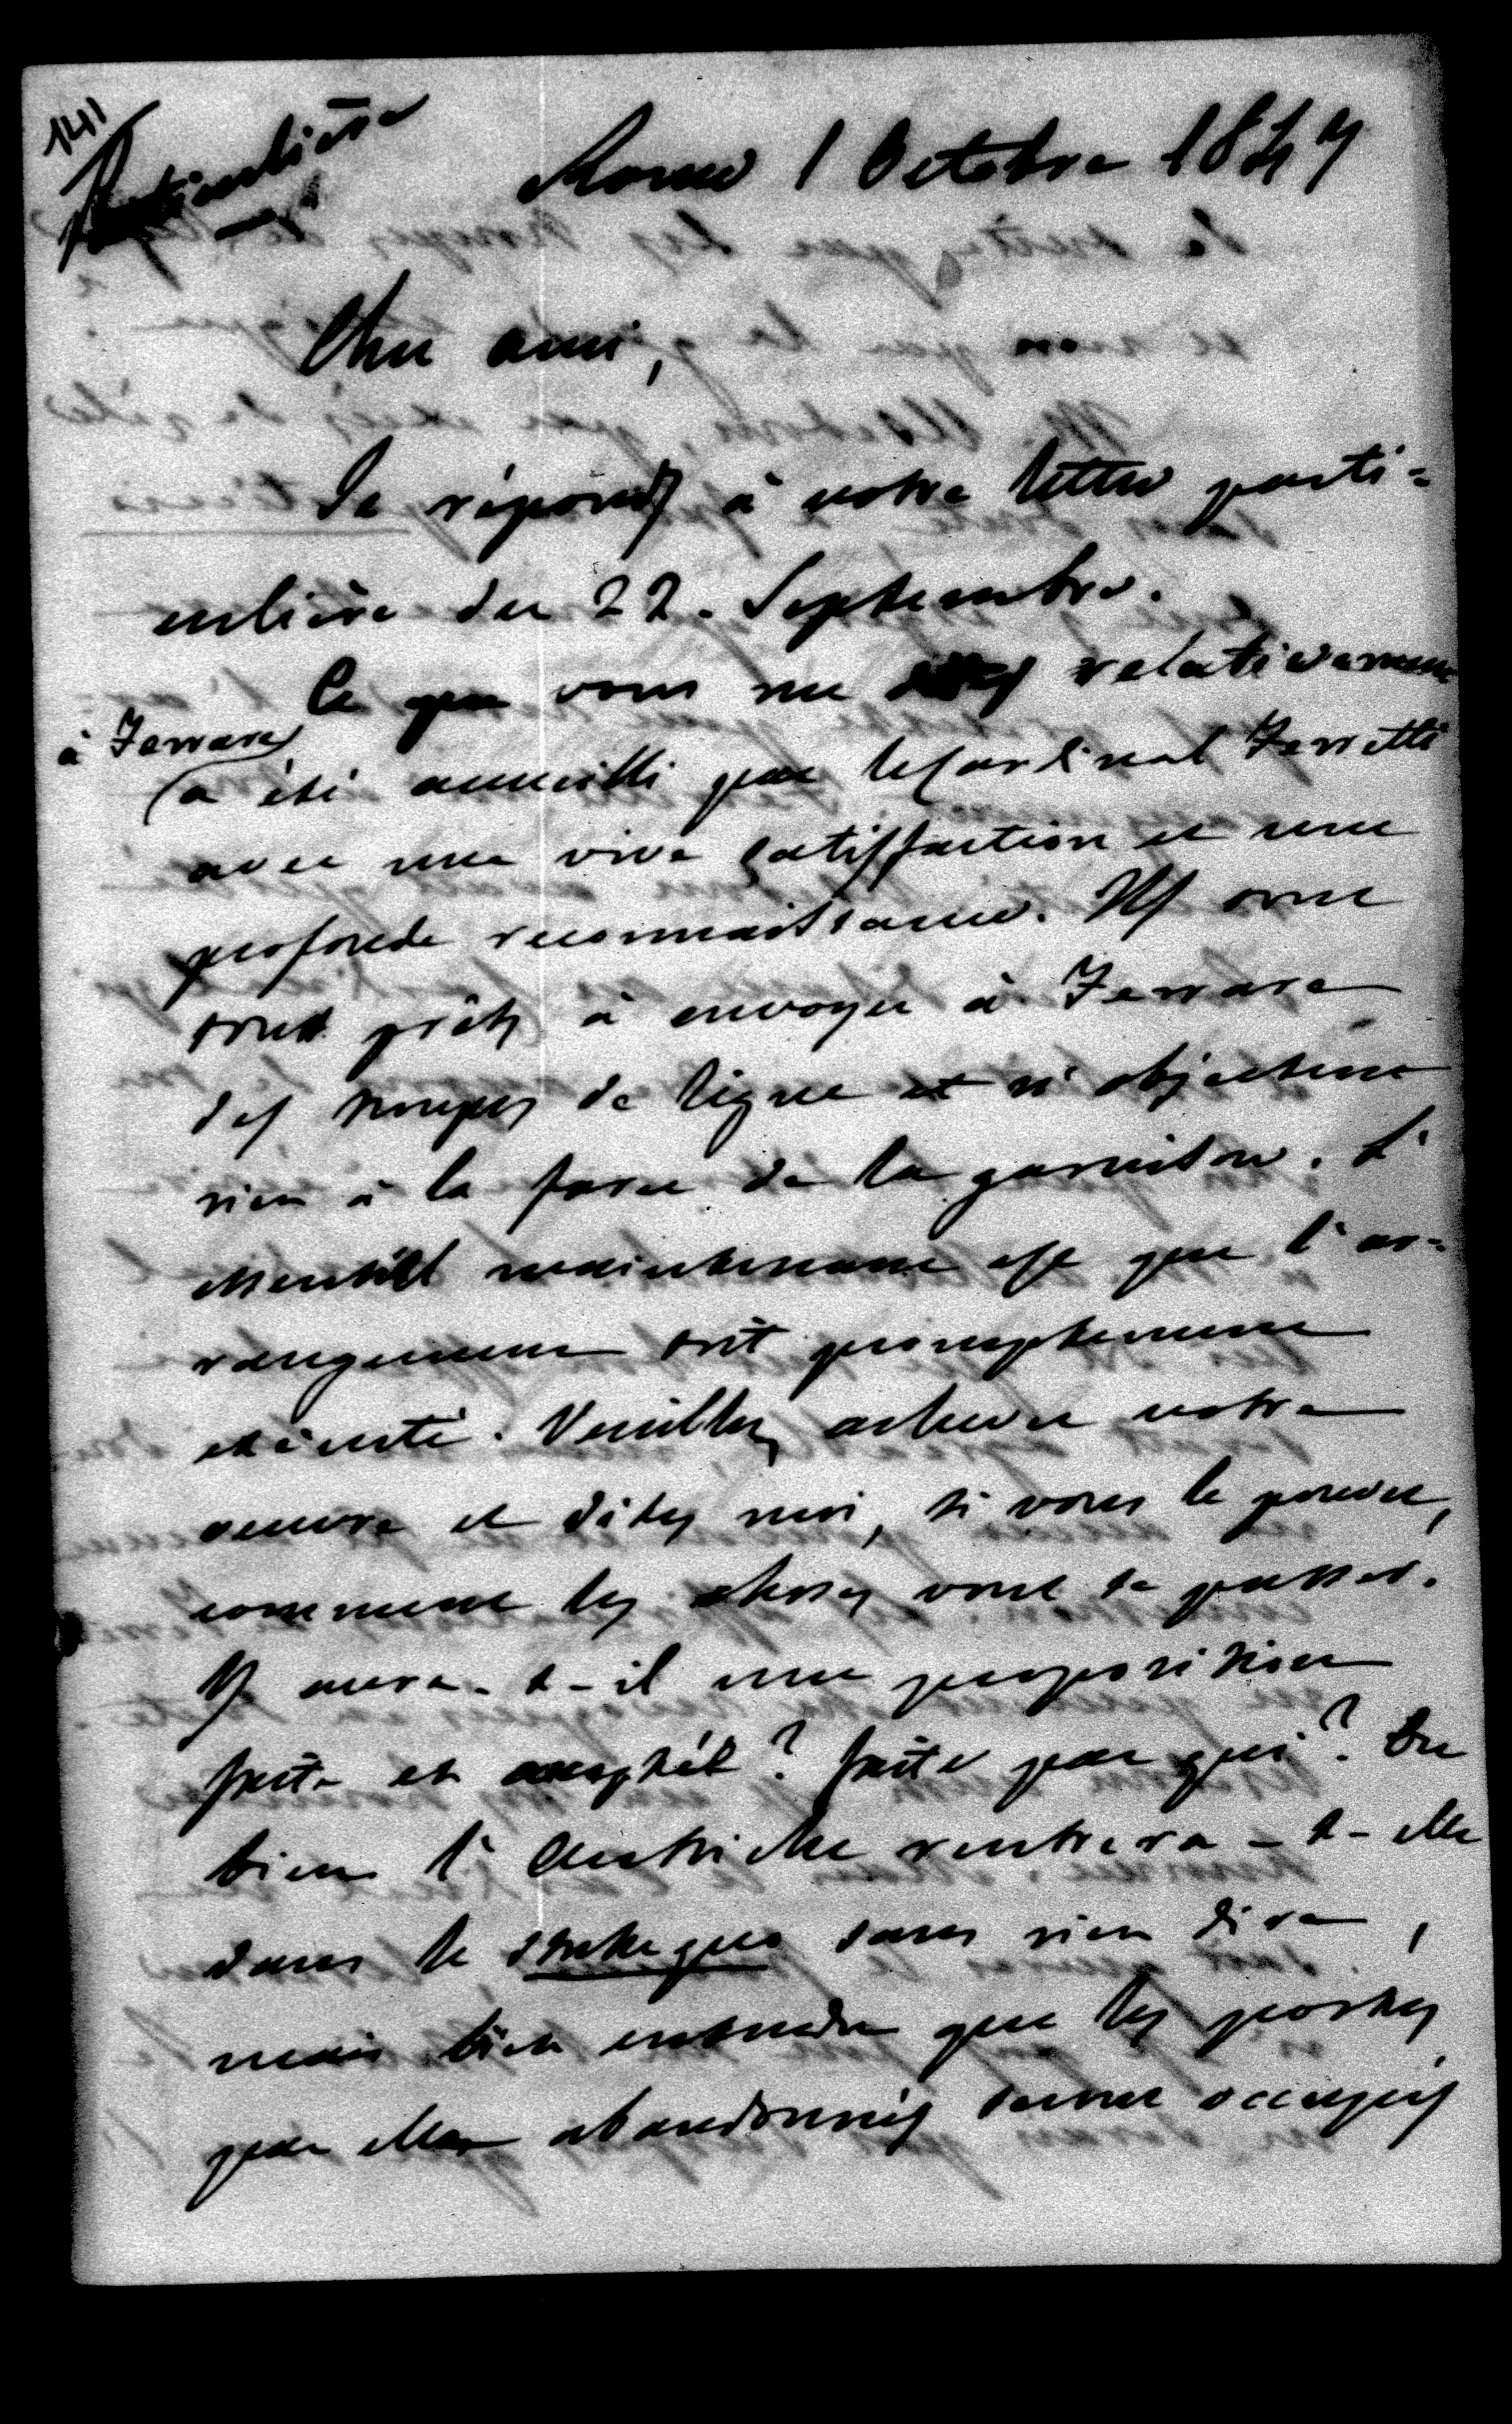 141
Particulière
Rome 1 Octobre 1847
Cher ami,
Je réponds à votre lettre parti=
culière du 22. Septembre.
Ce que vous me dites relativement
à Ferrare
a été accueilli par le Cardinal Ferretti
avec une vive satisfaction et une
profonde reconnaissance. Ils sont
prêts à envoyer à Ferrare
des troupes de ligne et n'objectent
rien à la force de la garnison. L'
essentiel maintenant est que l'ar=
rangement soit promptement
exécuté. Veuillez achever votre
oeuvre et dites moi, si vous le pouvez,
comment les choses vont se passer.
Y aura-t-il une proposition
faite et acceptée? faite par qui? Ou
bien l'Autriche rentrera-t-elle
dans le statu quo sans rien dire,
mais bien entendu que les postes
par elle abandonnés seront occupés